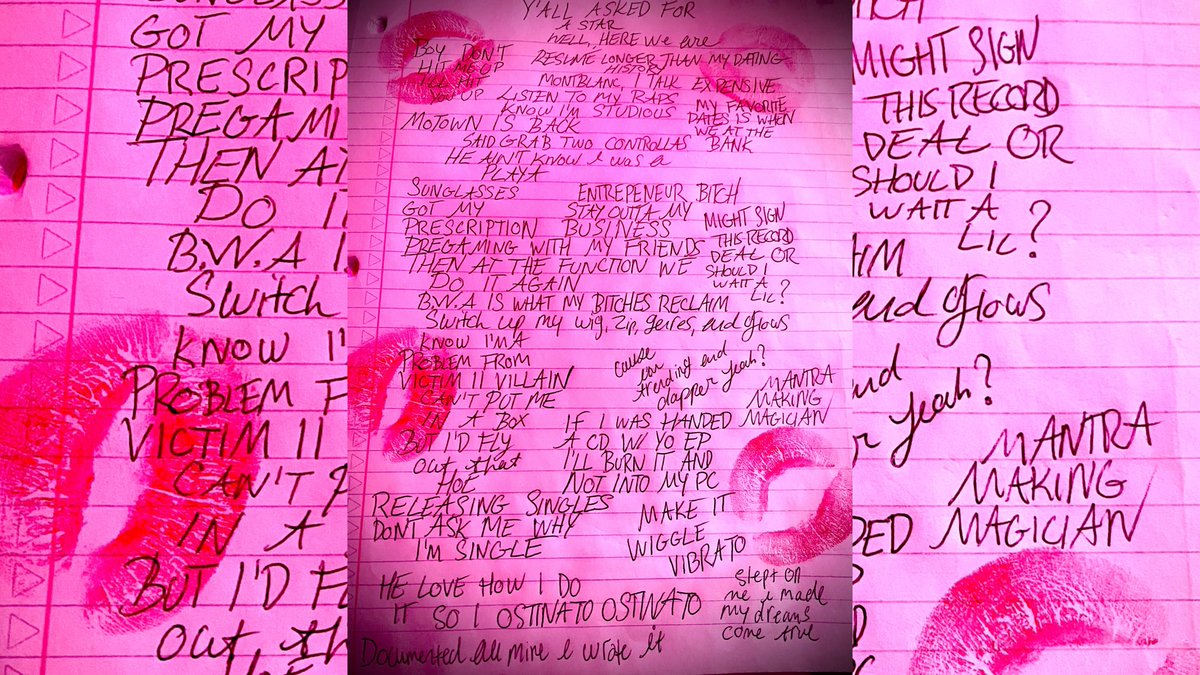 SUNGLASS
GOT MY
PRESCRIP
PREGAMI
THEN AT
DO IT
B.W.A I
Switch
KNOW I'
PROBLEM F
VICTIM II
CAN'T P
IN A
BUT I'D FL
out, th
Y'ALL ASKED FOR
A STAR
WELL, HERE we are
BOY DON'T
HIT ME UP
I'LL HIT
YOU UP
RESUME LONGER THAN MY DATING
HISTORY
MONTBLANC, TALK EXPENSIVE
LISTEN TO MY RAPS
KNOW I'M STUDIOUS
MY FAVORITE
DATES IS WHEN
WE AT THE
BANK
MOTOWN IS BACK
SAID GRAB TWO CONTROLLAS
HE AIN'T KNOW I was a
PLAYA
SUNGLASSES
GOT MY
PRESCRIPTION
ENTREPENEUR BITCH
STAY OUTTA MY
BUSINESS
PREGAMING WITH MY FRIENDS
THEN AT THE FUNCTION WE
DO IT AGAIN
MIGHT SIGN
THIS RECORD
DEAL OR
SHOULD I
WAIT A
LIL?
B.W.A IS WHAT MY BITCHES RECLAIM
Switch up my wig, zip, genres, and flows
KNOW I'M A
PROBLEM FROM
VICTIM II VILLAIN
CAN'T PUT ME
IN A BOX
BUT I'D FLY
out, that
HOE
cause
I'm
trending and
dapper yeah?
MANTRA
MAKING
MAGICIAN
IF I WAS HANDED
A CD W/ YO EP
I'LL BURN IT AND
NOT INTO MY PC
RELEASING SINGLES
DONT ASK ME WHY
I'M SINGLE
MAKE IT
WIGGLE
VIBRATO
HE LOVE HOW I DO
IT SO I OSTINATO OSTINATO
slept on
me i made
my dreams
come true
Documented all mine I wrote it
MIGHT SIGN
THIS RECORD
DEAL OR
SHOULD I
WAIT A
LIL?
and flows
yeah?
MANTRA
MAKING
MAGICIAN